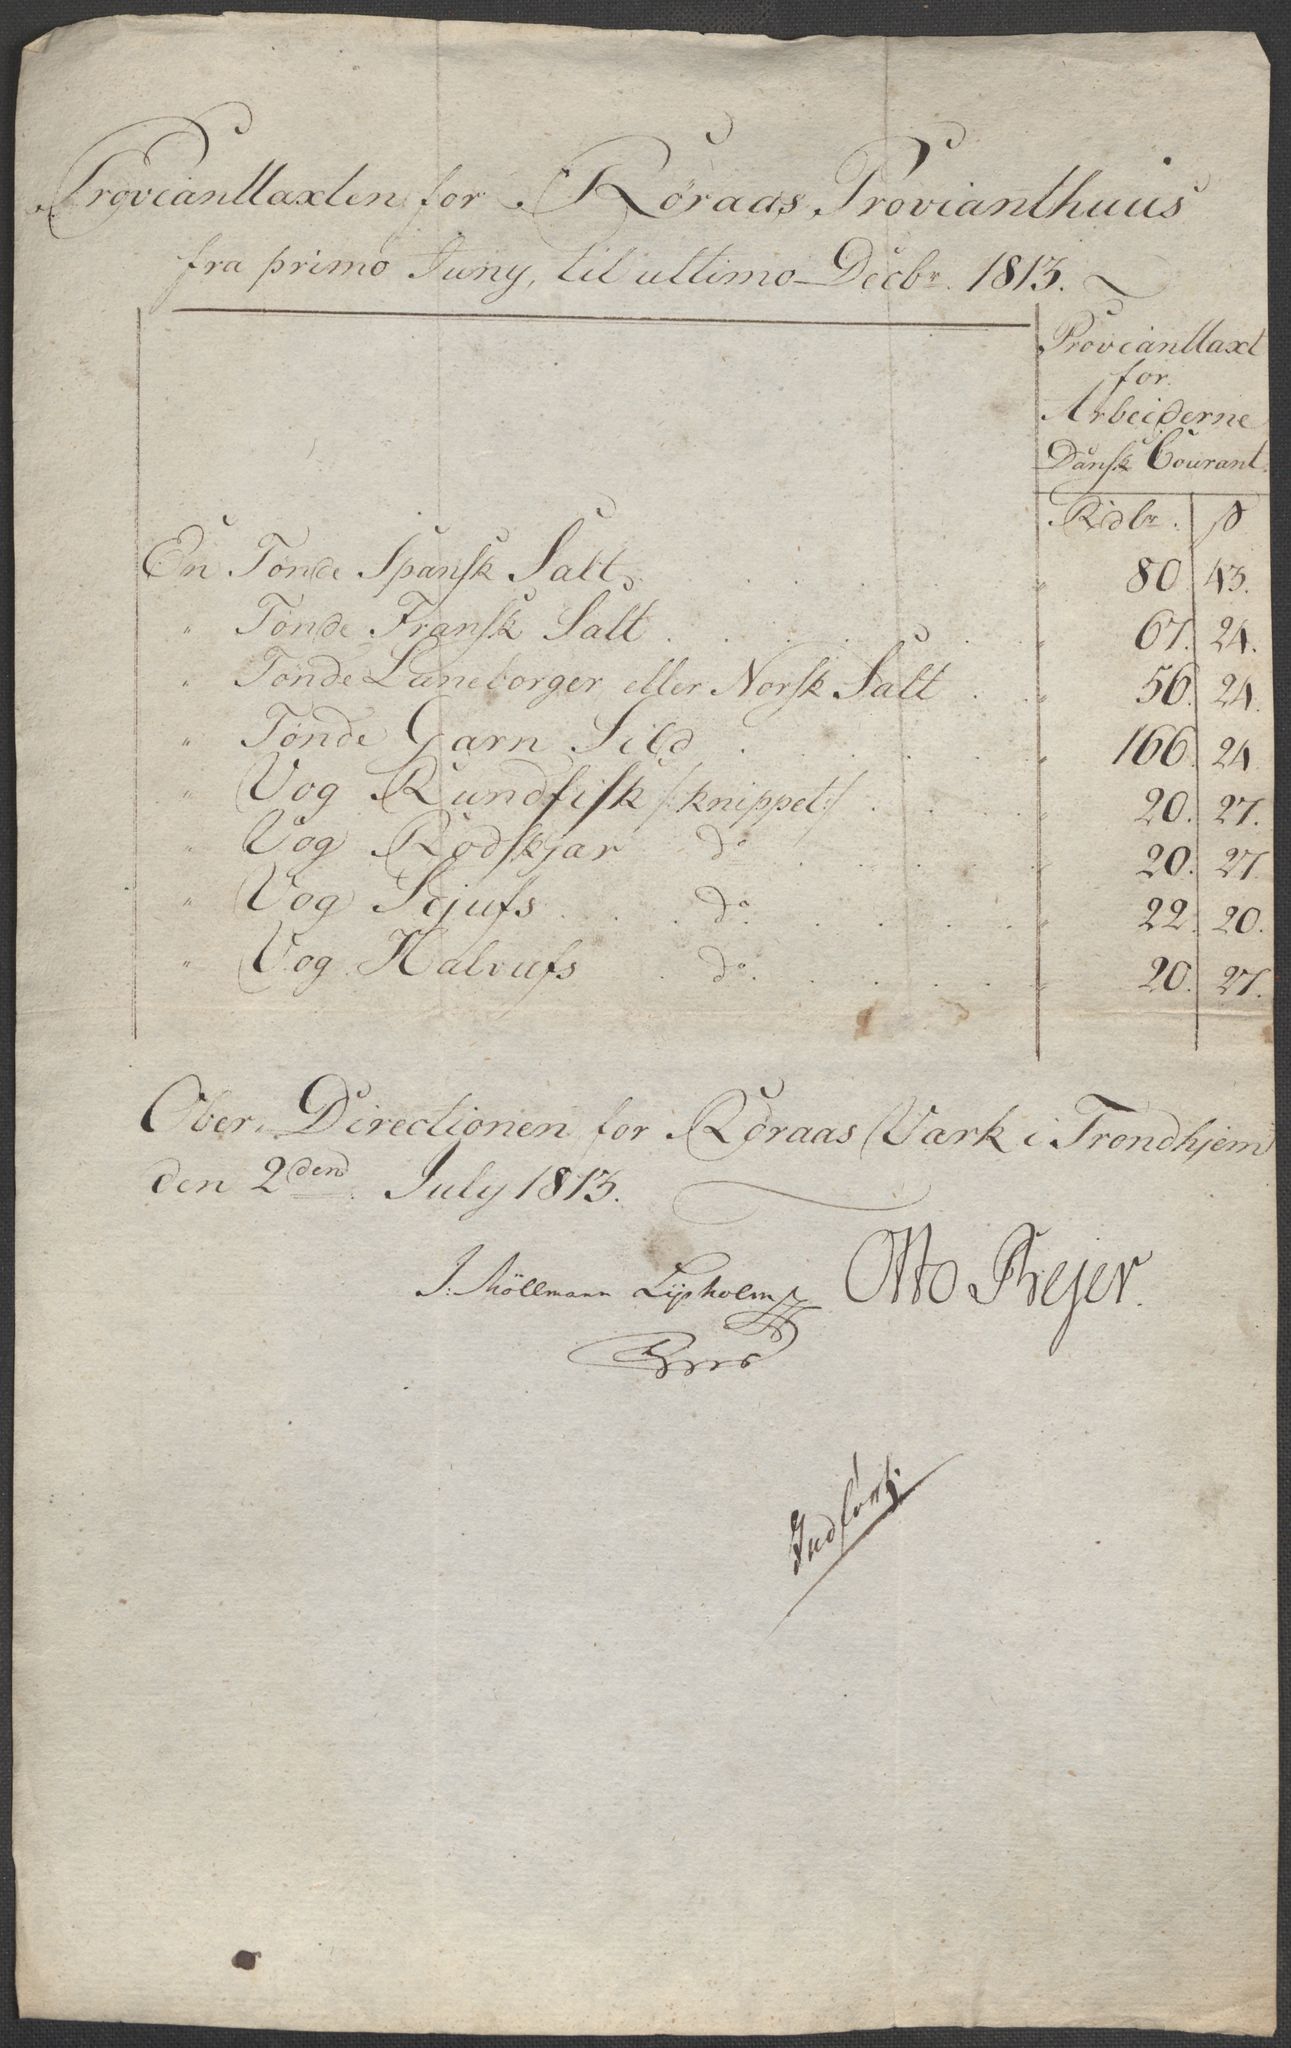 Provianttaxten for Röraas Provianthuus
fra primo Juny, til ultimo Decbr. 1813.
Provianttaxt
for
Arbeiderne
Dansk Courant.
Rdbr. ß
En Tønde Spansk Salt 80. 43.
" Tønde Fransk Salt 67. 24.
" Tønde Luneborger eller Norsk Salt 56. 24.
" Tønde Garn Sild 166. 24
" Vog Rundfisk /:knippet:/ 20. 27.
" Vog Rodskjær do 20. 27
" Vog Sejufs do 22. 20.
" Vog Halvufs do 20. 27.
Ober-Directionen for Röraas Værk i Trondhjem
den 2den July 1813.
J: Möllmann Lysholm Otto Frejer.
Indført